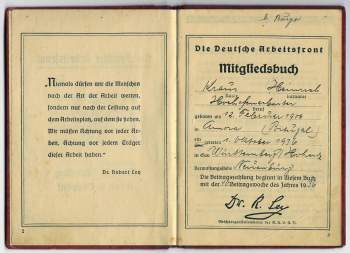 „Niemals dürfen wir die Menschen
nach der Art der Arbeit werten,
sondern nur nach der Leistung auf
dem Arbeitsplatz, auf dem sie stehen.
Wir müssen Achtung vor jeder Ar-
beit, Achtung vor jedem Träger
dieser Arbeit haben."
Dr. Robert Ley
2
Die Deutsche Arbeitsfront
Mitgliedsbuch
Heinrich
Name
Beruf
geboren am 12. Februar
(Portugal)
eingetreten 1. Oktober 1936
in Gau Württemberg/Hohenz
Verwaltungsstelle Neuenbürg
Die Beitragszahlung beginnt in diesem Buch
mit der Beitragswoche des Jahres 1936
Dr. R. Ley